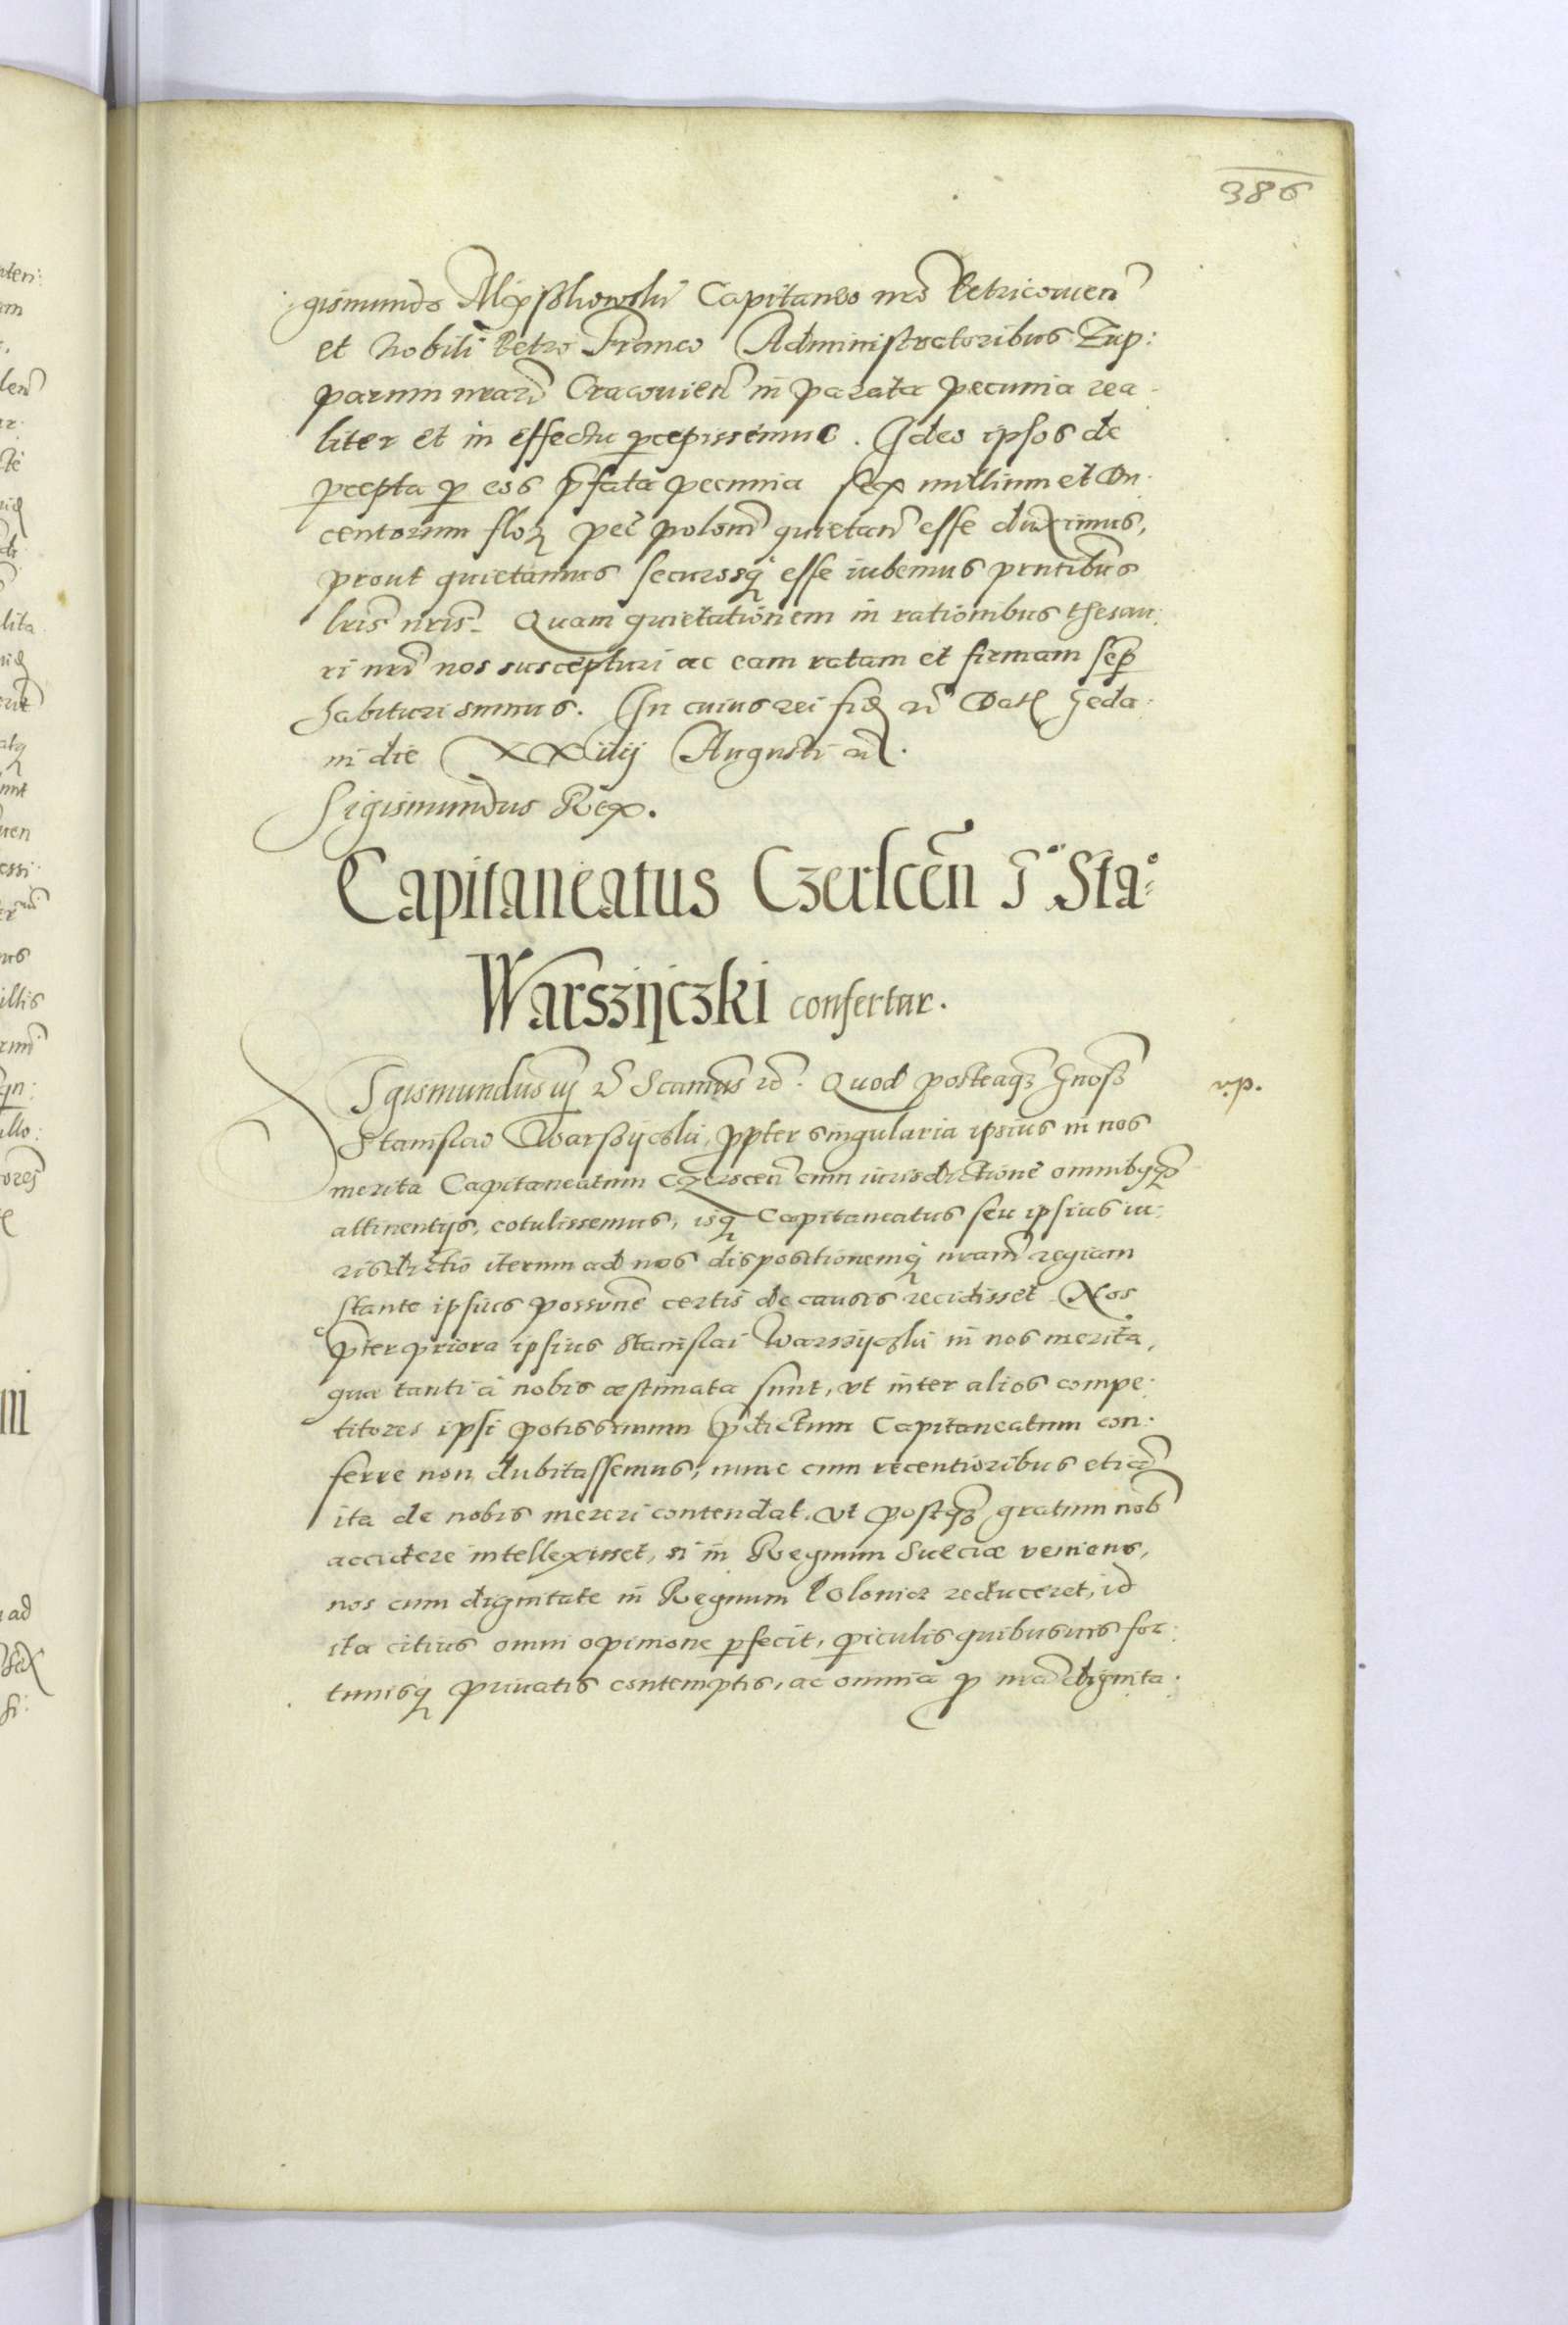 386
gismundo Mÿsskowski Capitaneo nrõ Petricouień
et Nobili Petro Franco Administratoribus Zup:
parum nrarũ Cracouień in parata pecunia rea-
liter et in effectu pcepissemus. Ideo ipsos de
pcepta p eos p̃fata pecunia sex millium et Du-
centorum floꝝ pec̃ polonˀ quietanˀ esse duximus,
prout quietamus securosq̃ esse iubemus pn̄tibus
lris nris. Quam quietationem in rationibus thesau:
ri nrĩ nos suscepturi ac eam ratam et firmam semp̃
habituri sumus. In cuius rei fidꝫ etc̃ Datꝫ Geda-
ni die XXiiij Augusti etc̃.
Sigismundus Rex.
Capitaneatus Czerscen̄ G. Sta:
Warszijczki confertur.
SIgismundus iij etc̃ Scamus etc̃. Quod posteaqꝫ Gnoso
v.p.
Stanislao Warssijczki, ppter singularia ipsius in nos
merita Capitaneatum Czerscen̄ cum iurisdictione omnibusqꝫ
attinentijs, cotulissemus, isq̃ Capitaneatus seu ipsius iu-
risdictio iterum ad nos dispositionemq̃ nram̃ regiam
stante ipsius possone certis de causis recidisset. Nos
ppter priora ipsius Stanislai Warszijczki in nos merita,
quæ tanti à nobis æstimata sunt, vt inter alios compe:
titores ipsi potissimum p̃dictum Capitaneatum con-
ferre non dubitassemus, nunc cum recentioribus etiã
ita de nobis mereri contendat, vt postqꝫ gratum nob̃
accidere intellexisset, si in Regnum Sueciæ veniens,
nos cum dignitate in Regnum Poloniæ reduceret, id
ita citius omni opinione pfecit, piculis quibusuis for:
tunisq̃ priuatis contemptis, ac omnia p nrã dignita-